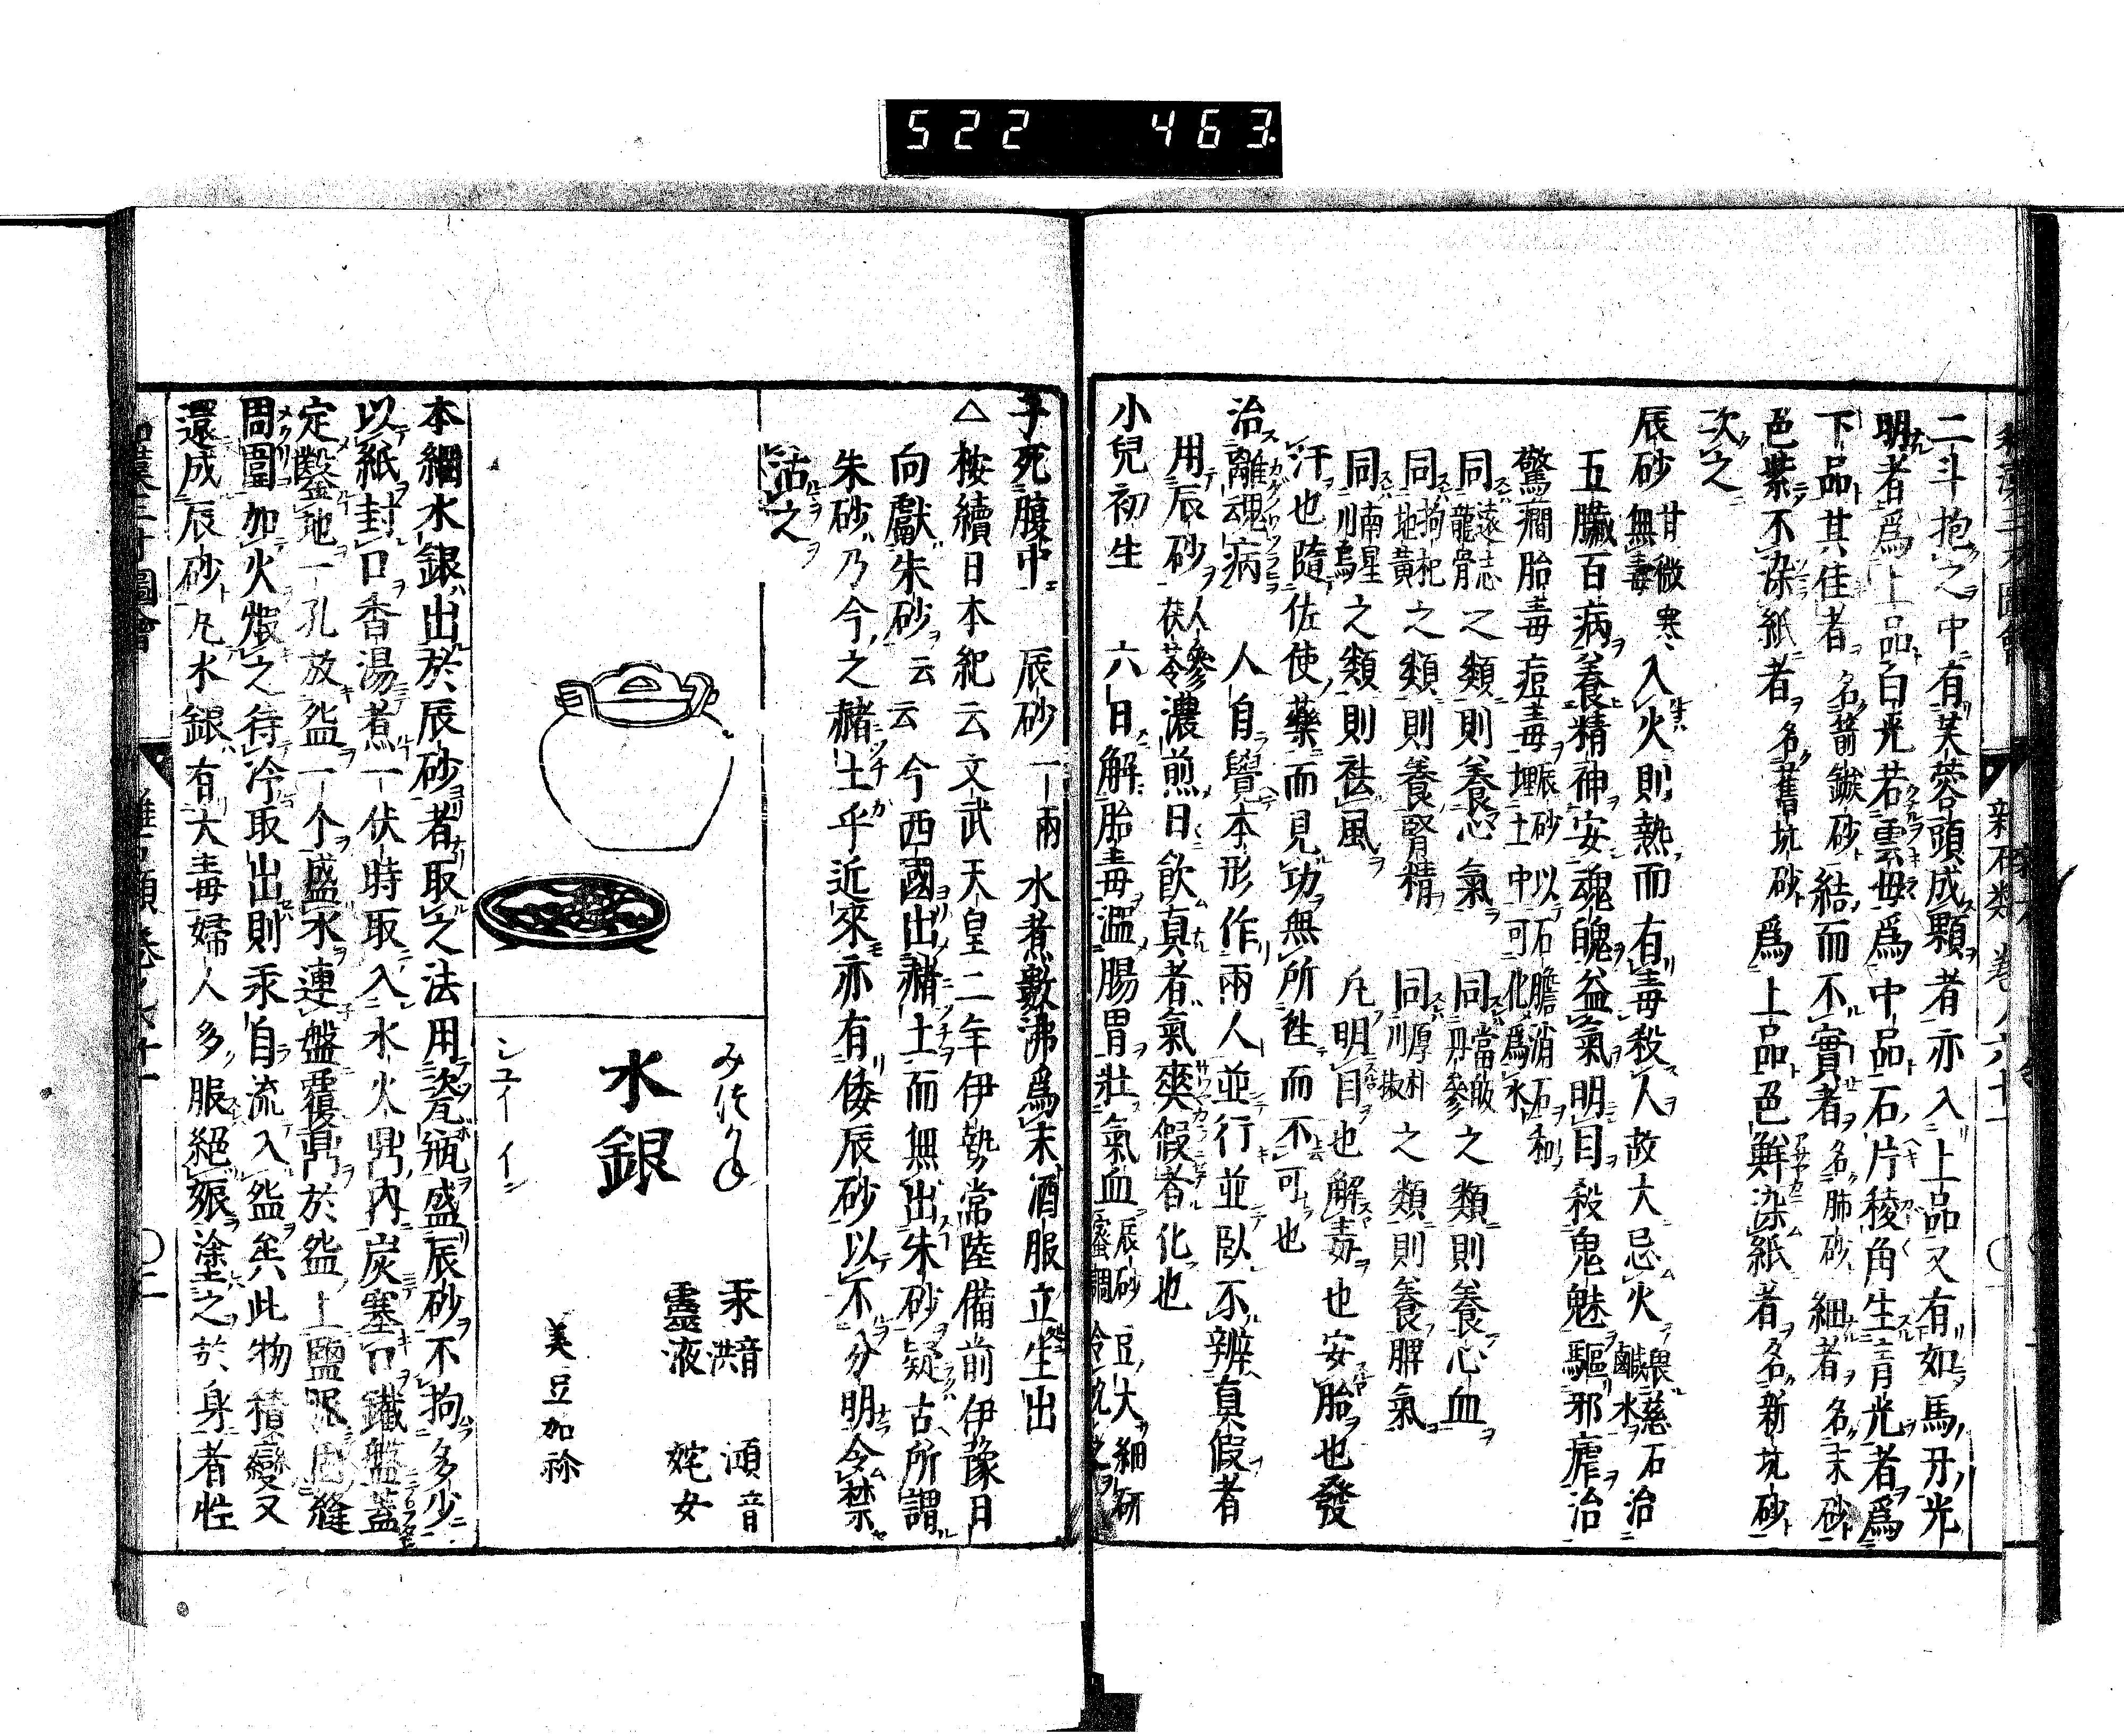 522 463
二斗抱之中有芙蓉頭成顆者亦入上品又有如馬牙光
明者爲上品白光若雲母爲中品石片稜角生青光者爲
下品其佳者名箭鏃砂結而不實者名肺砂細者名末砂
色紫不染紙者名舊坑砂爲上品色鮮染紙者名新坑砂
次之
辰砂甘微寒無毒入火則熱而有毒殺人故大忌火畏慈石鹹水治
五臟百病養精神安魂魄益氣明目殺鬼魅驅邪瘧治
驚癇胎毒痘毒辰砂以石膽消石和埋土中可化爲水
同遠志龍骨之類則養心氣 同當皈丹參之類則養心血
同枸杞地黃之類則養腎精 同厚朴川椒之類則養脾氣
同南星川烏之類則祛風 凡明目也解毒也安胎也發
汗也隨佐使藥而見功無所徃而不可也
治離魂病 人自覺本形作兩人並行並臥不辨真假者
用辰砂人參茯苓濃煎日飲真者氣爽假者化也
小兒初生 六日解胎毒溫腸胃壯氣血辰砂豆大細研蜜調
子死腹中 辰砂一兩水煮數沸爲末酒服立出
△按續日本紀云文武天皇二年伊勢常陸備前伊豫日
向獻朱砂云云今西國出赭土而無出朱砂疑古所謂
朱砂乃今之赭土乎近來亦有倭辰砂以不分明令禁
沽之
みづかね
水銀
シユイ イン
汞音洪 澒音
靈液 姹女
美豆加祢
本綱水銀出於辰砂者取之法用瓷瓶盛辰砂不拘多少
以紙封口香湯煮一伏時取入水火鼎內炭塞口鐵盤蓋
定鑿地一孔放盌一个盛水連盤覆鼎於盌上鹽泥固縫
周圍加火煆之待冷取出則汞自流入盌矣此物積變又
還成辰砂凡水銀有大毒婦人多服絕娠塗之於身者性